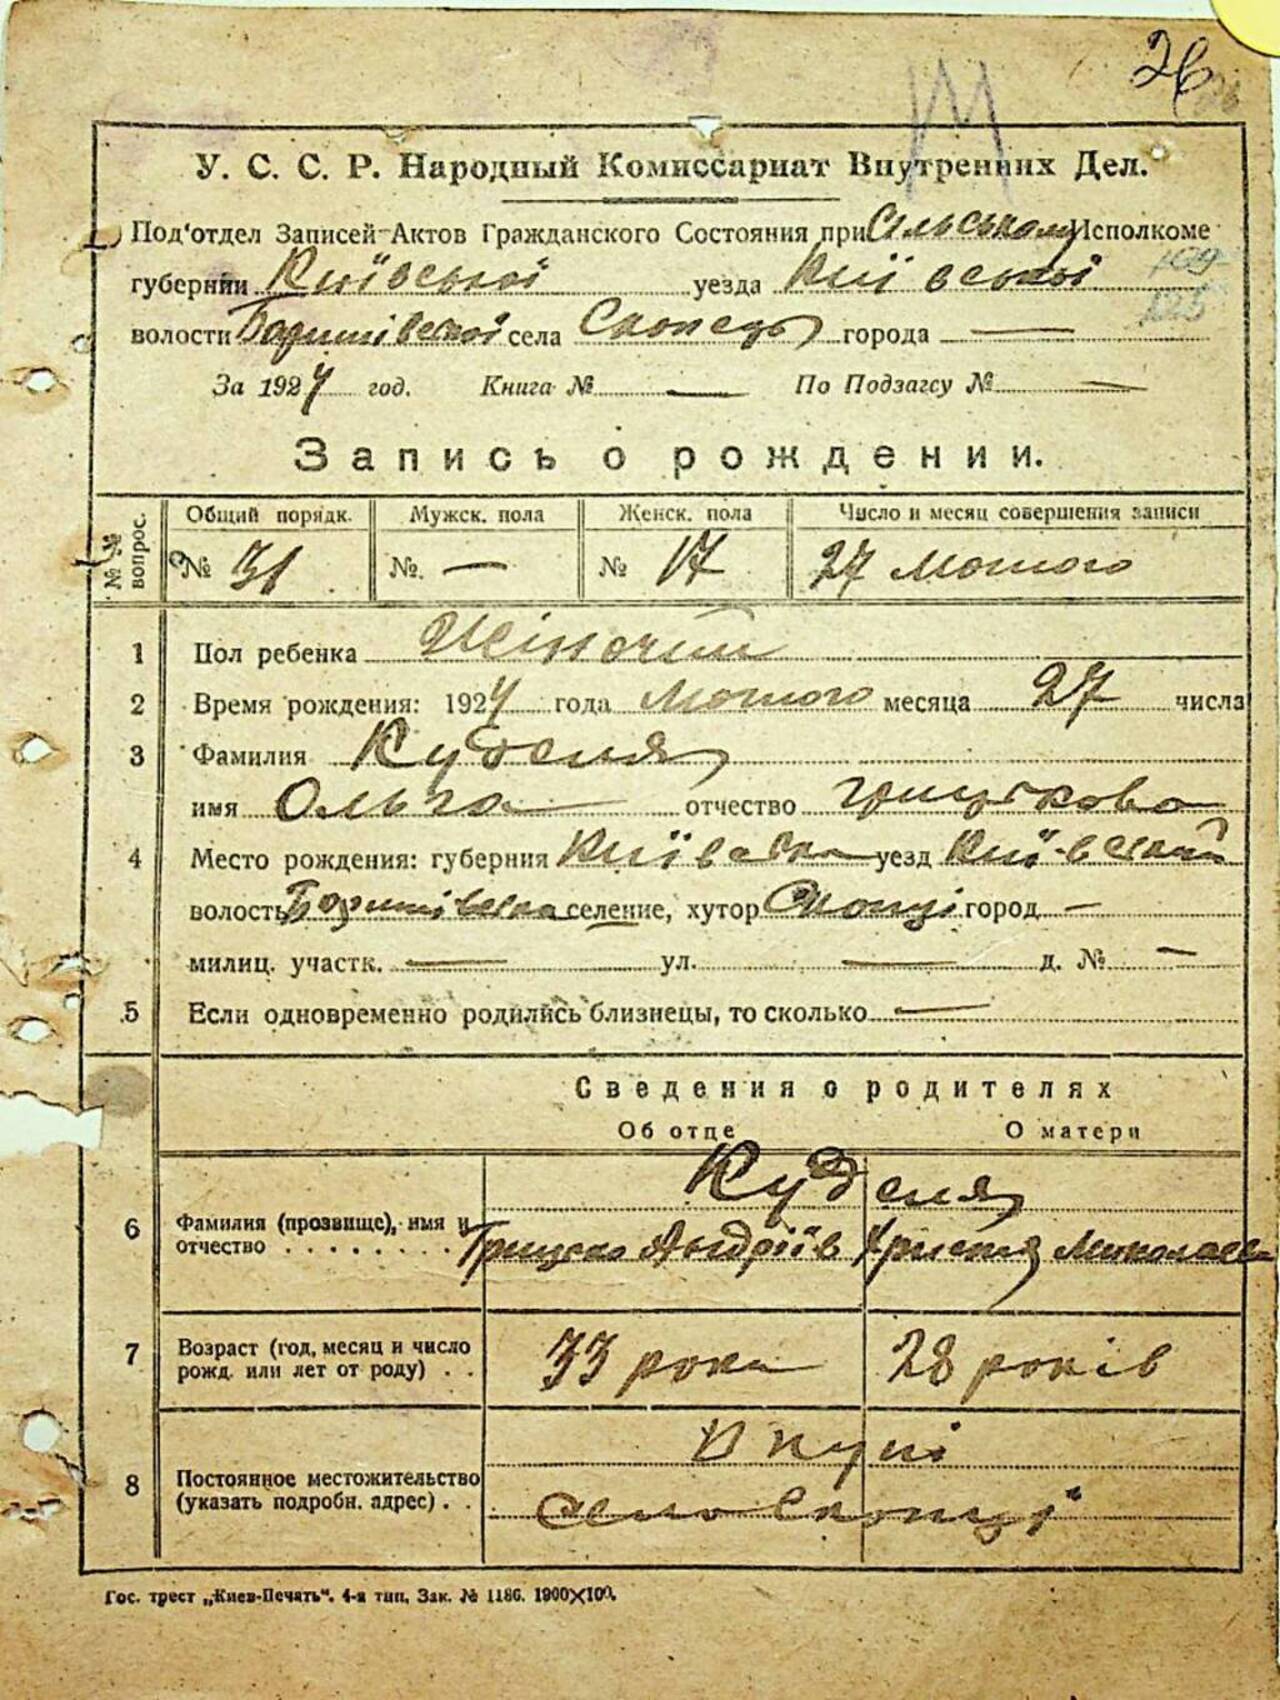 26
У. С. С. Р. Народный Комиссариат Внутренних Дел.
Под'отдел Записей Актов Гражданского Состояния при Сільському Исполкоме
губернии Київської уезда Київської
волости Баришівської села Скопець города —
За 1924 год. Книга № — По Подзагсу № —
Запись о рождении.
№ № вопрос.
Общий порядк. Мужск. пола Женск. пола Число и месяц совершения записи
№ 31 №. — № 17 27 лютого
1 Пол ребенка Жіночий
2 Время рождения: 1924 года лютого месяца 27 числа
3 Фамилия Куделя
имя Ольга отчество Грицькова
4 Место рождения: губерния Київська уезд Київський
волость Баришівська селение, хутор Скопці город —
милиц. участк. — ул. — д. № —
5 Если одновременно родились близнецы, то сколько —
Сведения о родителях
Об отце О матери
Куделя
6 Фамилия (прозвище), имя и
отчество . . . . . . . . Грицько Андріїв Христя Миколаєва
7 Возраст (год, месяц и число
рожд. или лет от роду) . . 33 роки 28 років
Вкупі
8 Постоянное местожительство
(указать подробн. адрес) . . Село Скопці
Гос. трест „Киев-Печать". 4-я тип. Зак. № 1186. 1900×100.